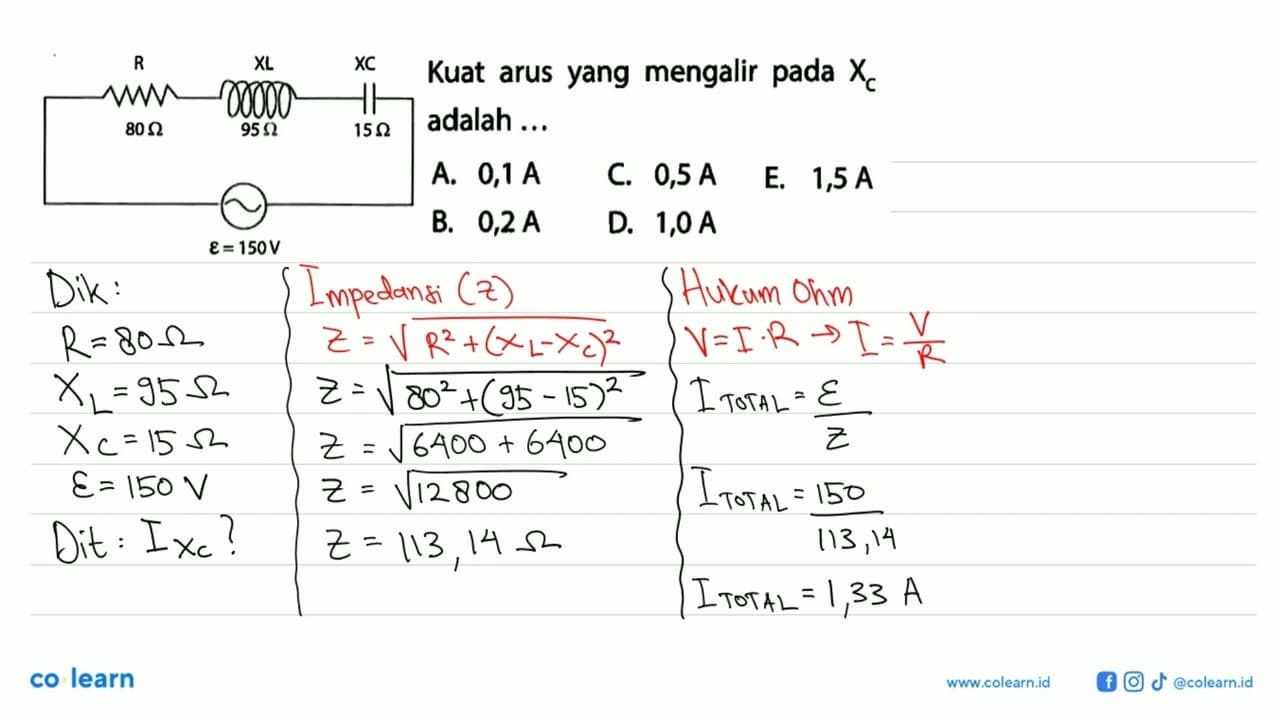 R XL XC
80 Ω 95 Ω 15 Ω
ε = 150 V
Kuat arus yang mengalir pada X_C
adalah ...
A. 0,1 A C. 0,5 A E. 1,5 A
B. 0,2 A D. 1,0 A
Dik:
R = 80 Ω
X_L = 95 Ω
X_C = 15 Ω
ε = 150 V
Dit : I_XC ?
Impedansi (Z)
Z = √R² + (X_L - X_C)²
Z = √80² + (95 - 15)²
Z = √6400 + 6400
Z = √12800
Z = 113,14 Ω
Hukum Ohm
V = I . R → I = V/R
I TOTAL = ε/Z
I TOTAL = 150/113,14
I TOTAL = 1,33 A
co learn
www.colearn.id @colearn.id